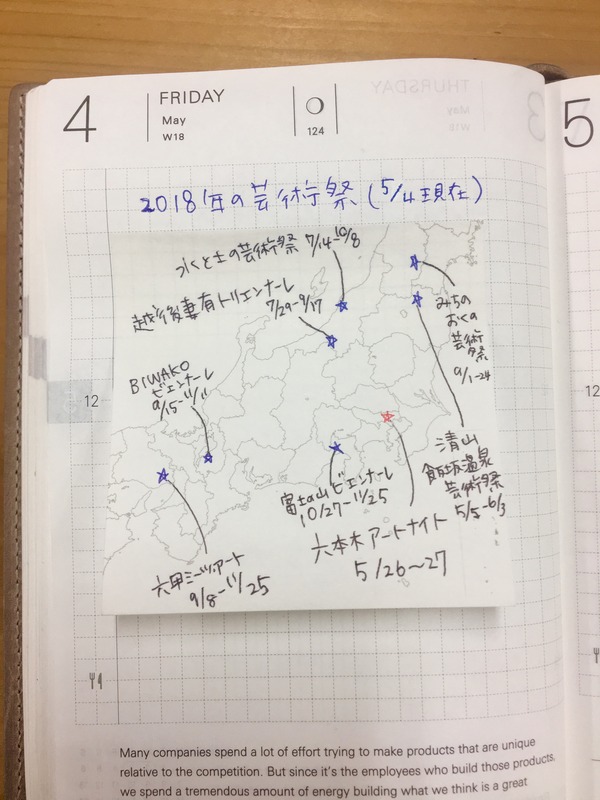 4
FRIDAY
May
W18
124
5
2018年の芸術祭(5/4現在)
水と土の芸術祭 7/14-10/8
越後妻有トリエンナーレ
7/29-9/17
みちの
おくの
芸術
祭
9/1-24
BIWAKO
ビエンナーレ
9/15-11/11
12
12
清山
飯坂温泉
芸術祭
5/5-6/3
富士の山ビエンナーレ
10/27-11/25
六本木アートナイト
5/26〜27
六甲ミーツ・アート
9/8-11/25
Many companies spend a lot of effort trying to make products that are unique
relative to the competition. But since it's the employees who build those products,
we spend a tremendous amount of energy building what we think is a great